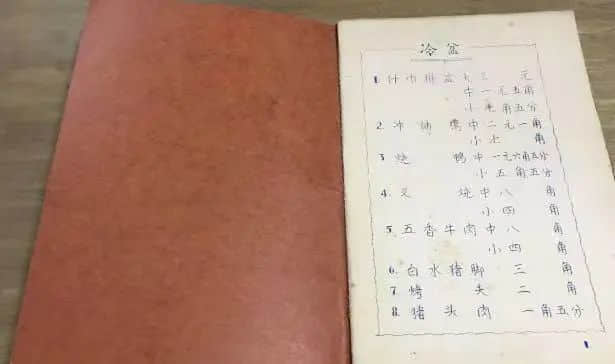 冷盆
1 什巾拼盆大三 元
中一元五角
小 角五分
2. 冲 鹰中二元一角
小七 角
3 烧 鸭中一元六角五分
小五角五分
4. 叉 烧中八 角
小四 角
5. 五香牛肉中八 角
小四 角
6. 白水猪脚 三 角
7 烤 夫 二 角
8. 猪头肉 一角五分
1